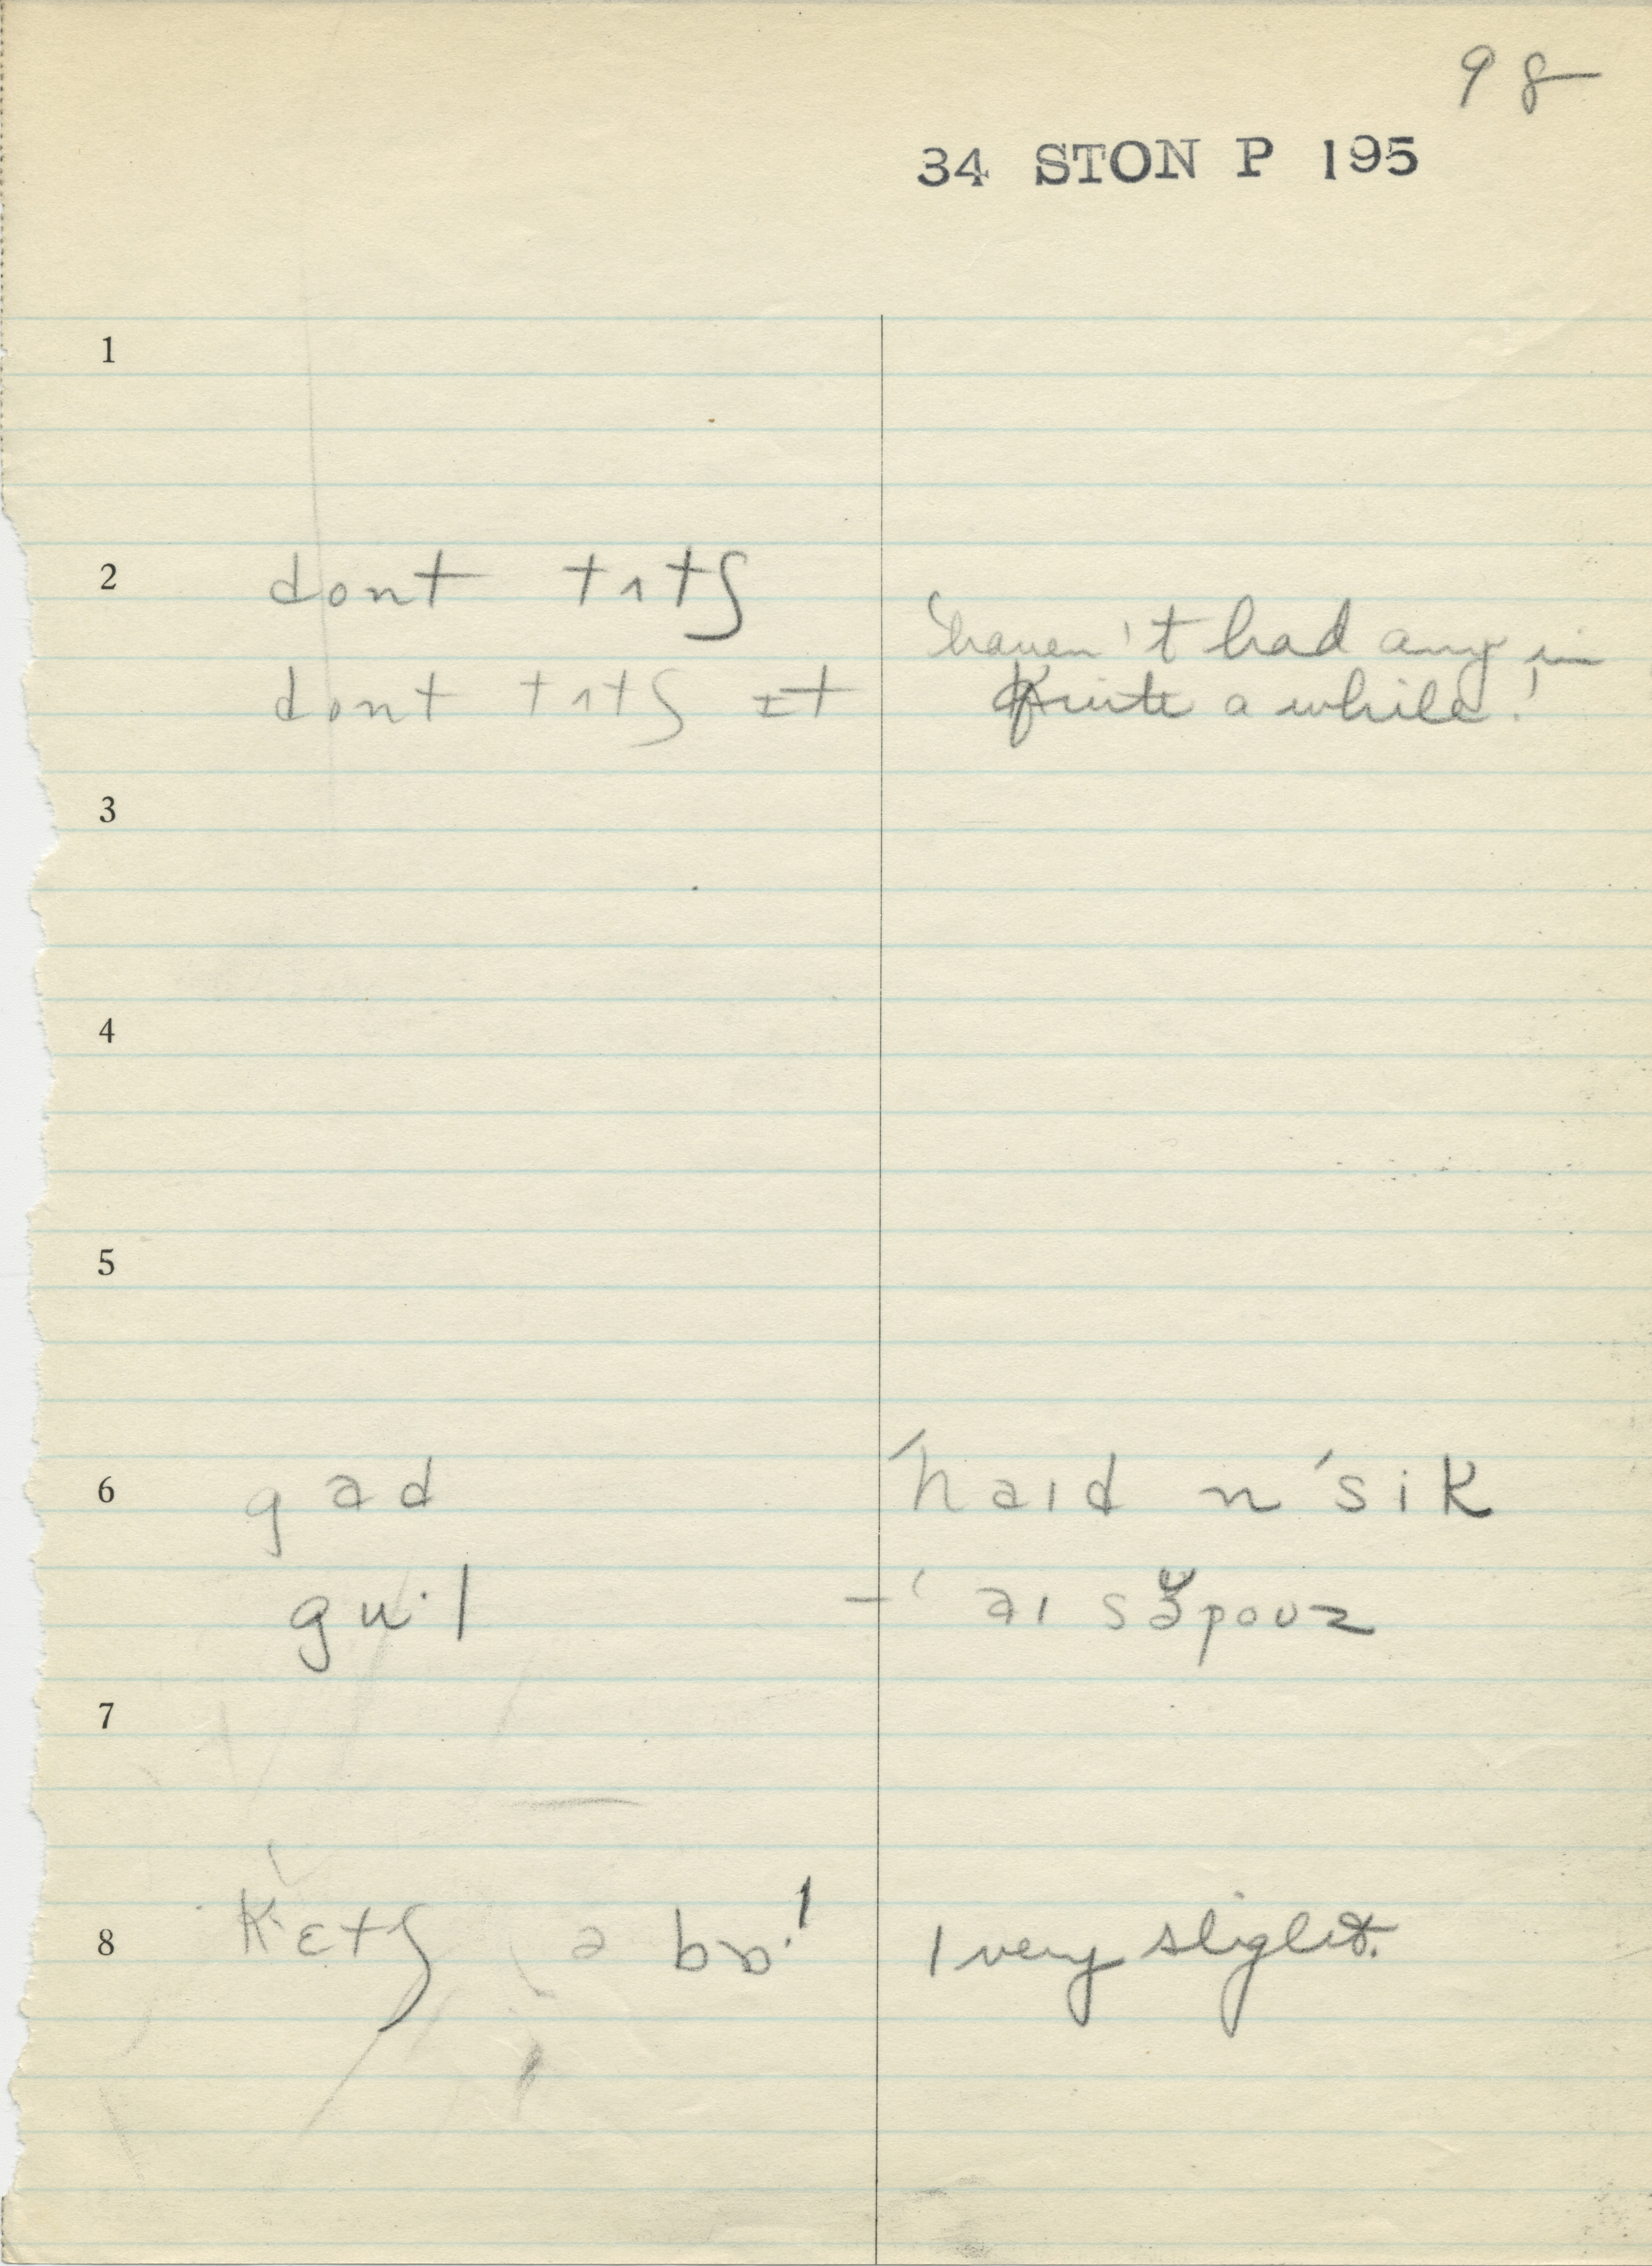 98
34 STON P 195
1
2 dont tʌtʃ
dont tʌtʃ ɪt
'haven't had any in
quite a while!'
3
4
5
6 gad 'haɪd n 'sik
gu·l -' aɪ səpouz
7
8 k'ɛtʃ ə 1 very slight.